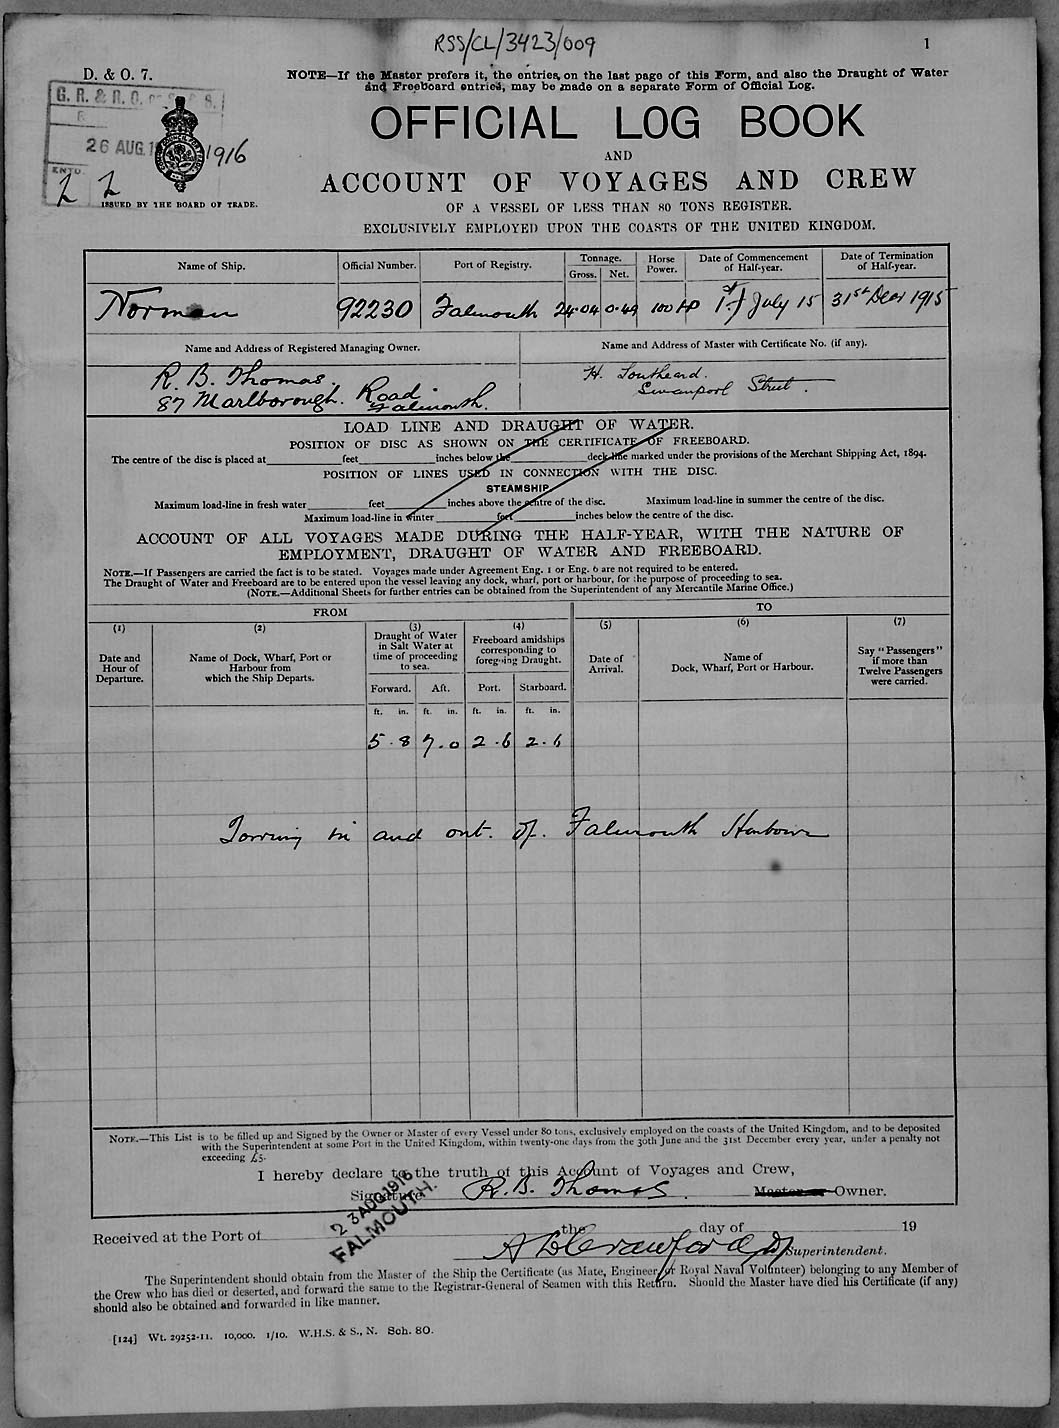 RSS/CL/3423/009
1
D. & O. 7.
NOTE—If the Master prefers it, the entries, on the last page of this Form, and also the Draught of Water
and Freeboard entries, may be made on a separate Form of Official Log.
G. R. & R. O. of S. & S.
26 AUG. 1916
2 2
ISSUED BY THE BOARD OF TRADE.
OFFICIAL LOG BOOK
AND
ACCOUNT OF VOYAGES AND CREW
OF A VESSEL OF LESS THAN 80 TONS REGISTER.
EXCLUSIVELY EMPLOYED UPON THE COASTS OF THE UNITED KINGDOM.
Name of Ship. Official Number. Port of Registry. Tonnage. Gross. Net. Horse Power. Date of Commencement of Half-year. Date of Termination of Half-year.
Norman 92230 Falmouth 24.04 0.49 100 HP 1st July 15 31st Decr 1915
Name and Address of Registered Managing Owner. Name and Address of Master with Certificate No. (if any).
R. B. Thomas. H. Southeard.
87 Marlborough. Road Falmouth. Swanpool Street.
LOAD LINE AND DRAUGHT OF WATER.
POSITION OF DISC AS SHOWN ON THE CERTIFICATE OF FREEBOARD.
The centre of the disc is placed at feet inches below the deck-line marked under the provisions of the Merchant Shipping Act, 1894.
POSITION OF LINES USED IN CONNECTION WITH THE DISC.
STEAMSHIP.
Maximum load-line in fresh water feet inches above the centre of the disc. Maximum load-line in summer the centre of the disc.
Maximum load-line in winter feet inches below the centre of the disc.
ACCOUNT OF ALL VOYAGES MADE DURING THE HALF-YEAR, WITH THE NATURE OF
EMPLOYMENT, DRAUGHT OF WATER AND FREEBOARD.
NOTE.—If Passengers are carried the fact is to be stated. Voyages made under Agreement Eng. 1 or Eng. 6 are not required to be entered.
The Draught of Water and Freeboard are to be entered upon the vessel leaving any dock, wharf, port or harbour, for the purpose of proceeding to sea.
(NOTE.—Additional Sheets for further entries can be obtained from the Superintendent of any Mercantile Marine Office.)
FROM TO
(1) (2) (3) (4) (5) (6) (7)
Date and Hour of Departure. Name of Dock, Wharf, Port or Harbour from which the Ship Departs. Draught of Water in Salt Water at time of proceeding to sea. Freeboard amidships corresponding to foregoing Draught. Date of Arrival. Name of Dock, Wharf, Port or Harbour. Say "Passengers" if more than Twelve Passengers were carried.
Forward. Aft. Port. Starboard.
ft. in. ft. in. ft. in. ft. in.
5.8 7.0 2.6 2.6
Towing in and out. of. Falmouth Harbour
NOTE.—This List is to be filled up and Signed by the Owner or Master of every Vessel under 80 tons, exclusively employed on the coasts of the United Kingdom, and to be deposited
with the Superintendent at some Port in the United Kingdom, within twenty-one days from the 30th June and the 31st December every year, under a penalty not
exceeding £5.
I hereby declare to the truth of this Account of Voyages and Crew,
Signature R. B. Thomas. Master or Owner.
23 AUG 1916
FALMOUTH.
Received at the Port of the day of 19
Superintendent.
The Superintendent should obtain from the Master of the Ship the Certificate (as Mate, Engineer, or Royal Naval Volunteer) belonging to any Member of
the Crew who has died or deserted, and forward the same to the Registrar-General of Seamen with this Return. Should the Master have died his Certificate (if any)
should also be obtained and forwarded in like manner.
[124] Wt. 29252-11. 10,000. 1/10. W.H.S. & S., N. Sch. 80.